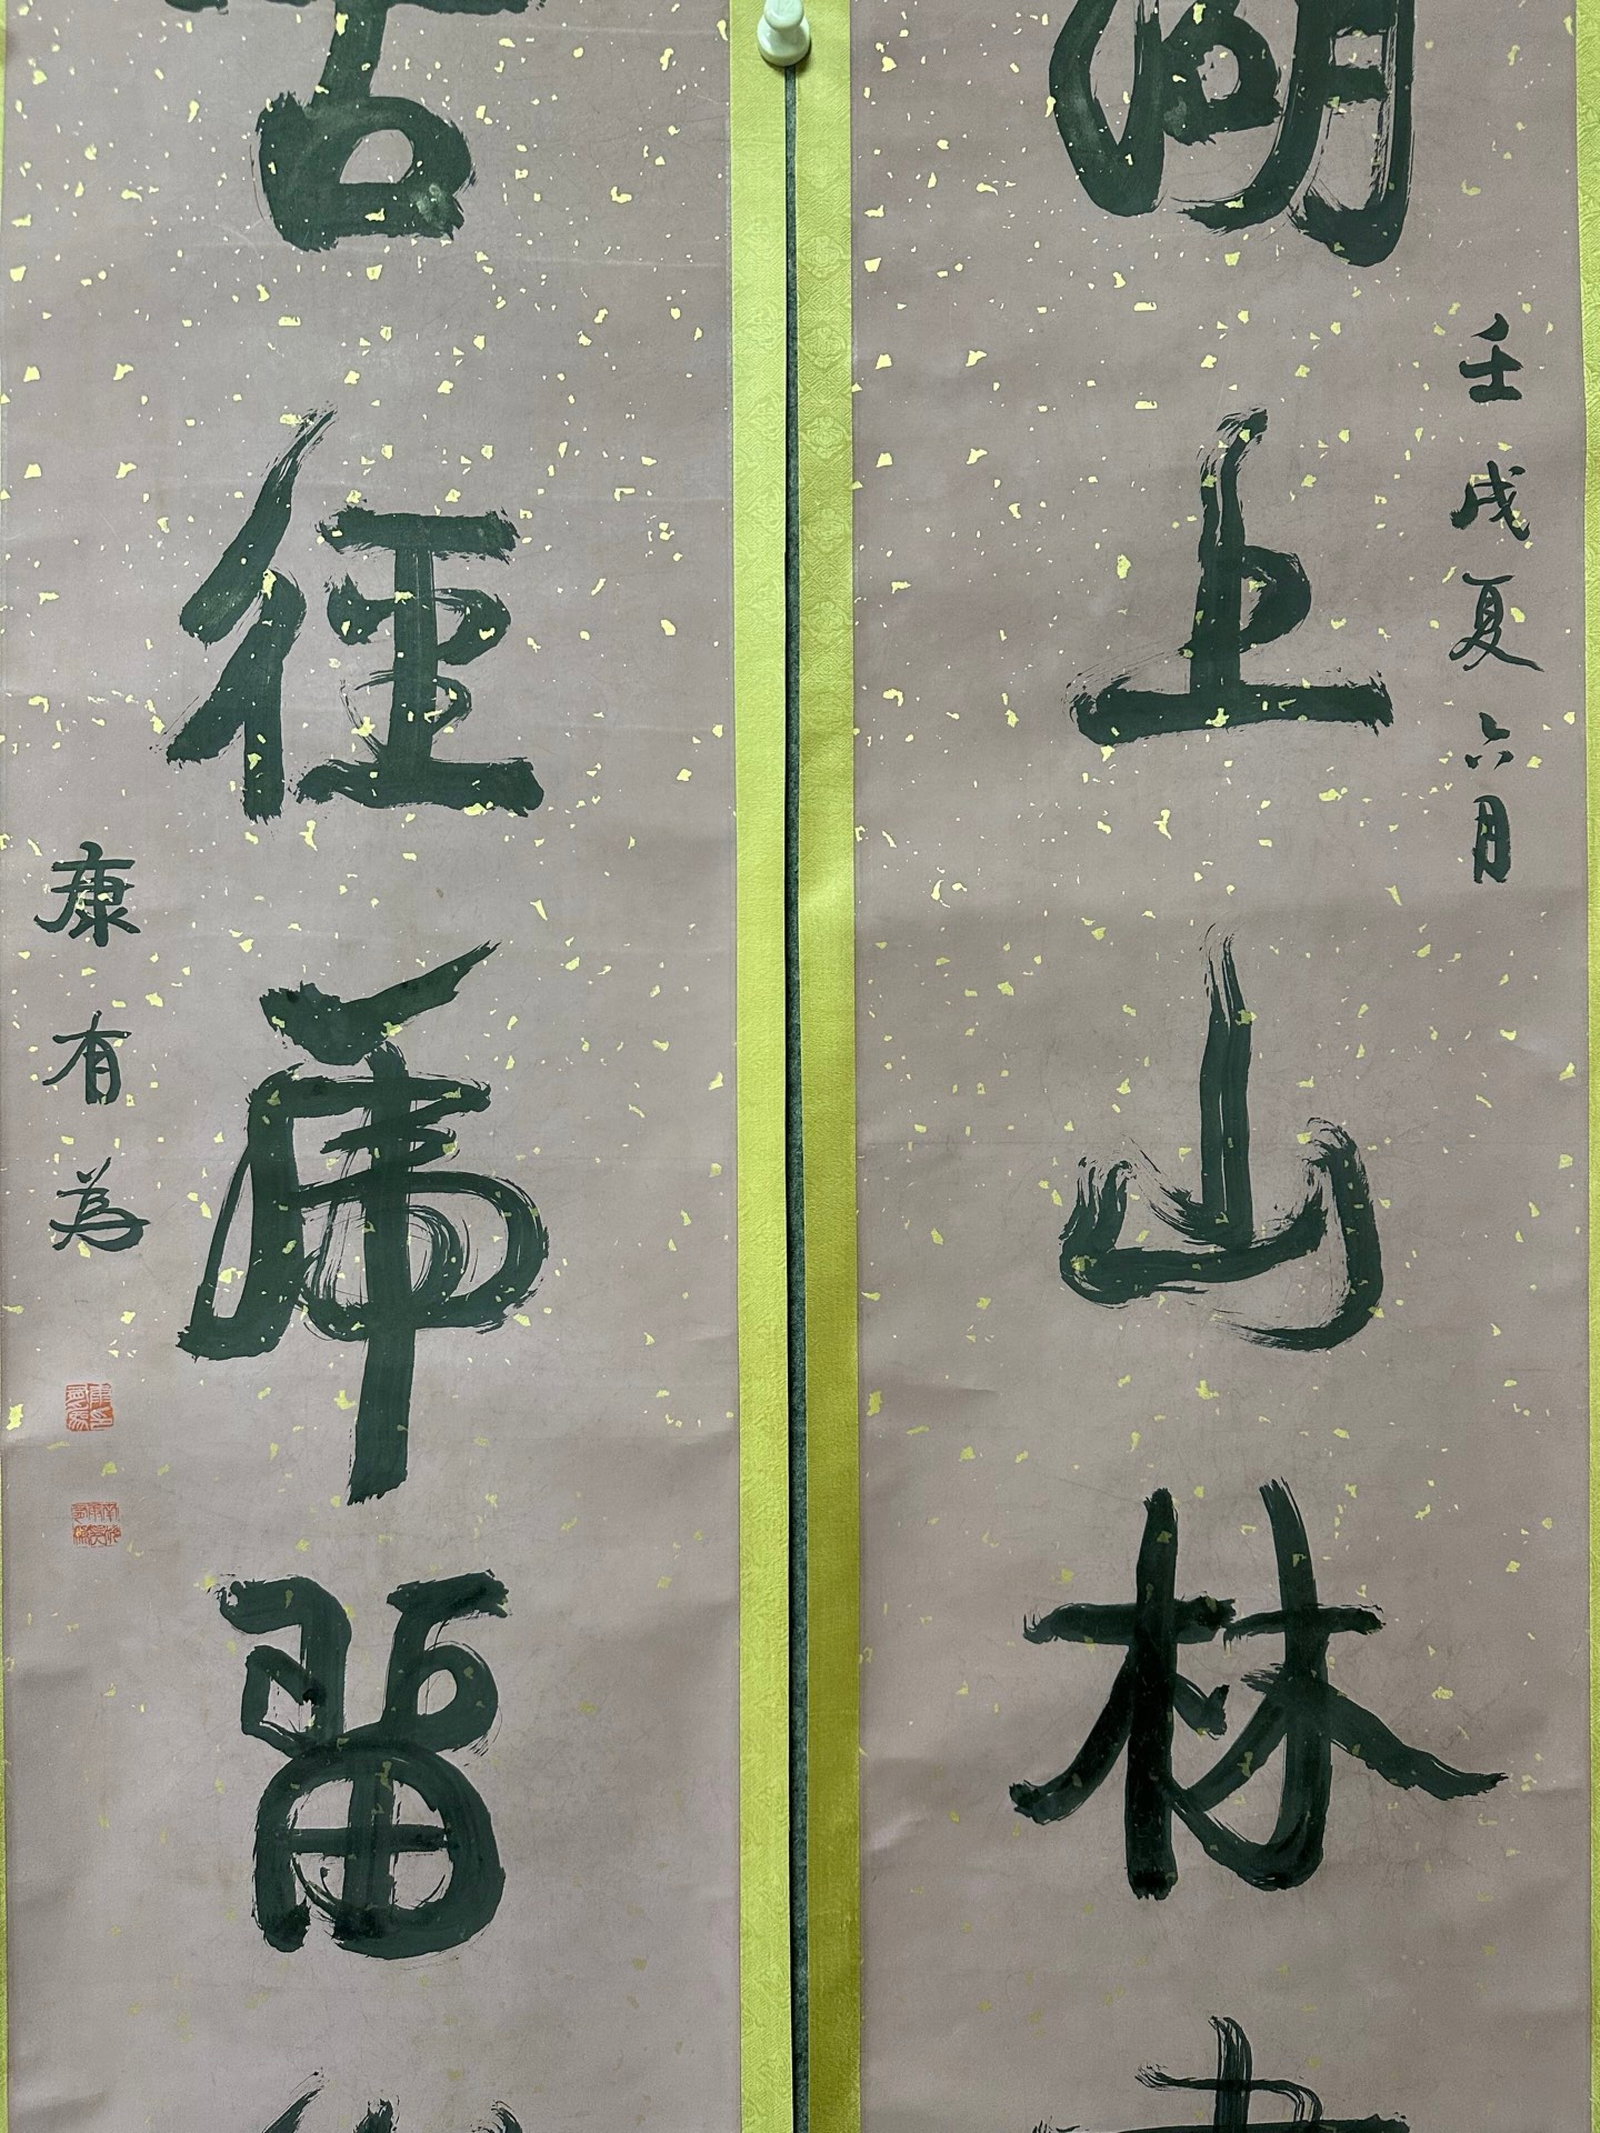 湖上山林
壬戌夏六月
古徑帚留
康有為